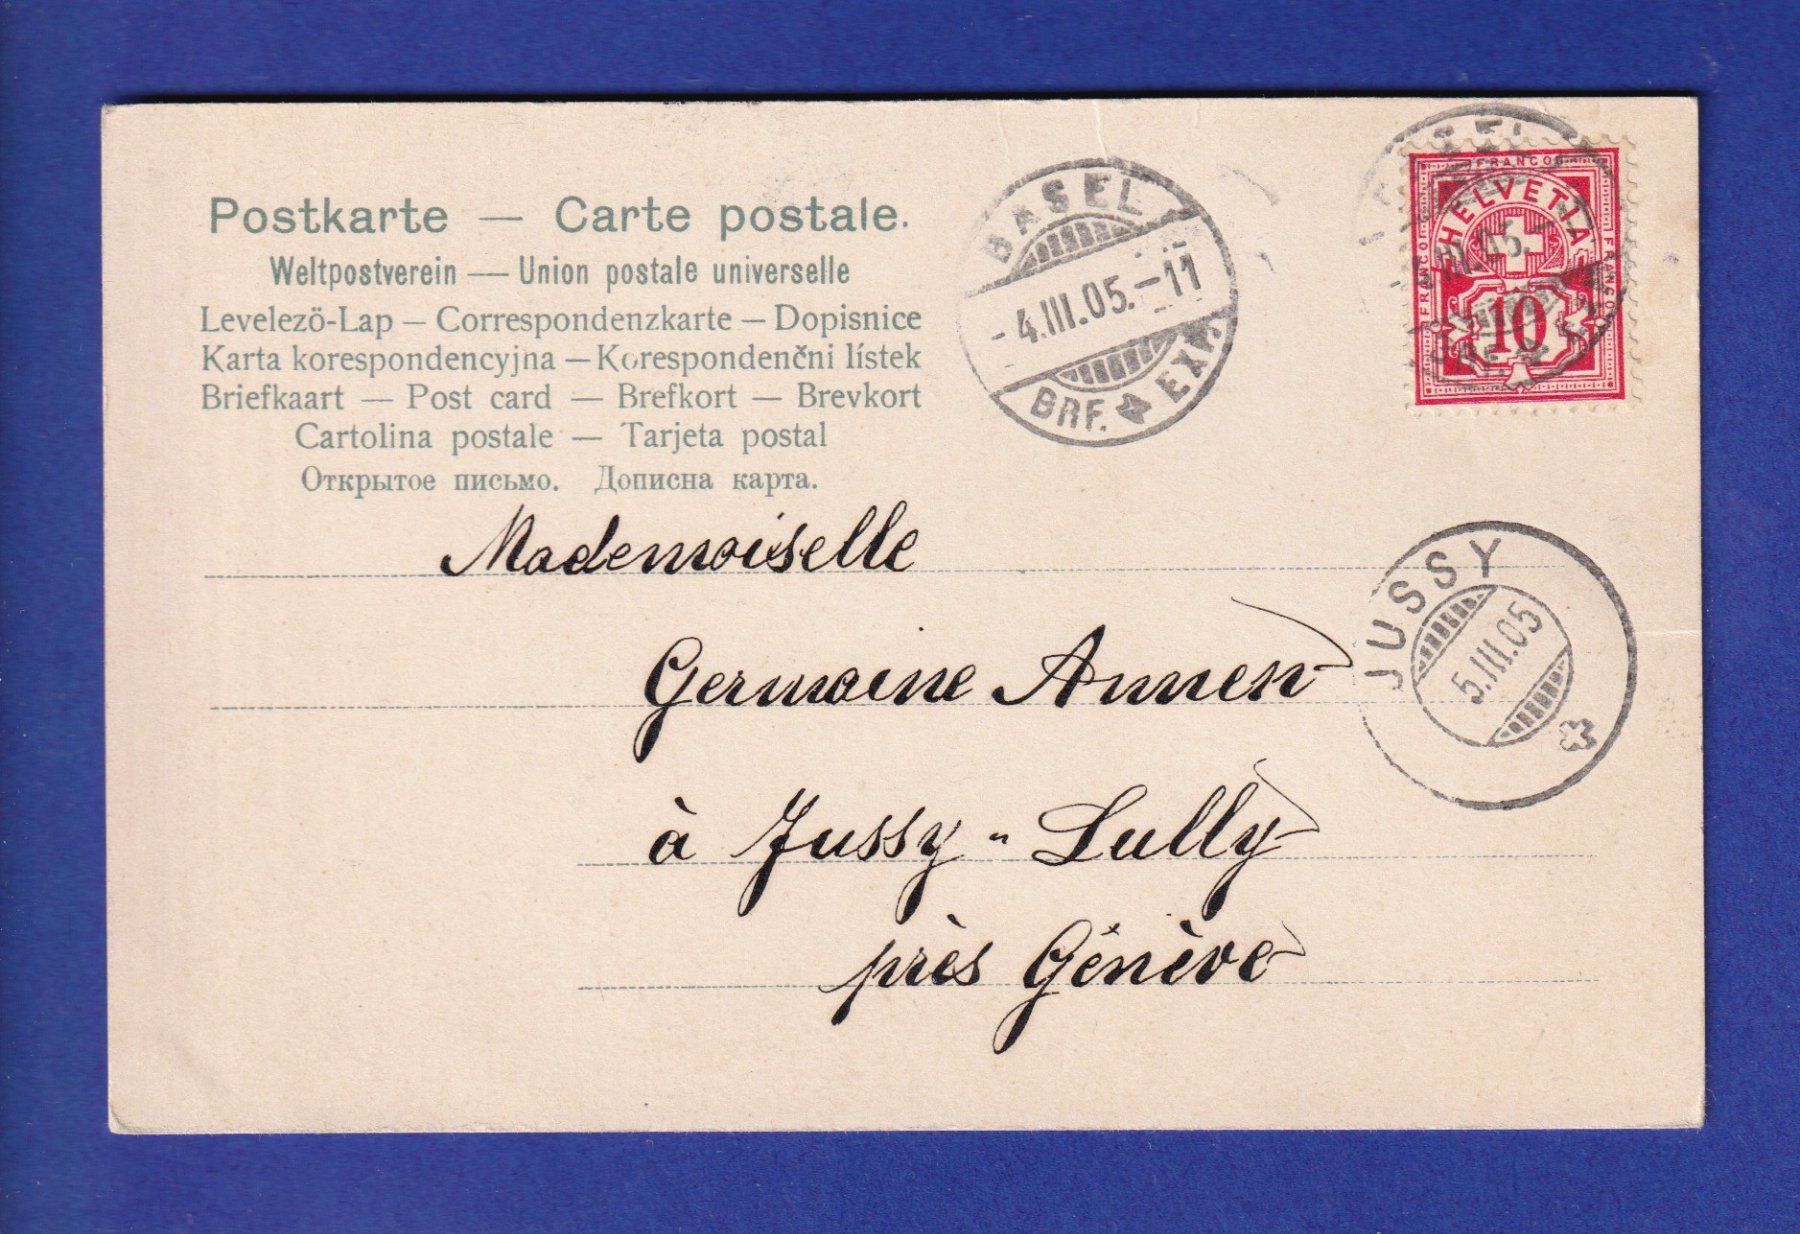 Postkarte — Carte postale.
Weltpostverein — Union postale universelle
Levelezö-Lap — Correspondenzkarte — Dopisnice
Karta korespondencyjna — Korespondenční lístek
Briefkaart — Post card — Brefkort — Brevkort
Cartolina postale — Tarjeta postal
Открытое письмо. Дописна карта.
BASEL
-4.III.05.-11
BRF. EXP.
FRANCO
FRANCO
FRANCO
HELVETIA
10
III.05.
JUSSY
5.III.05
Mademoiselle
Germaine Annen
à Jussy - Lully
près Génève